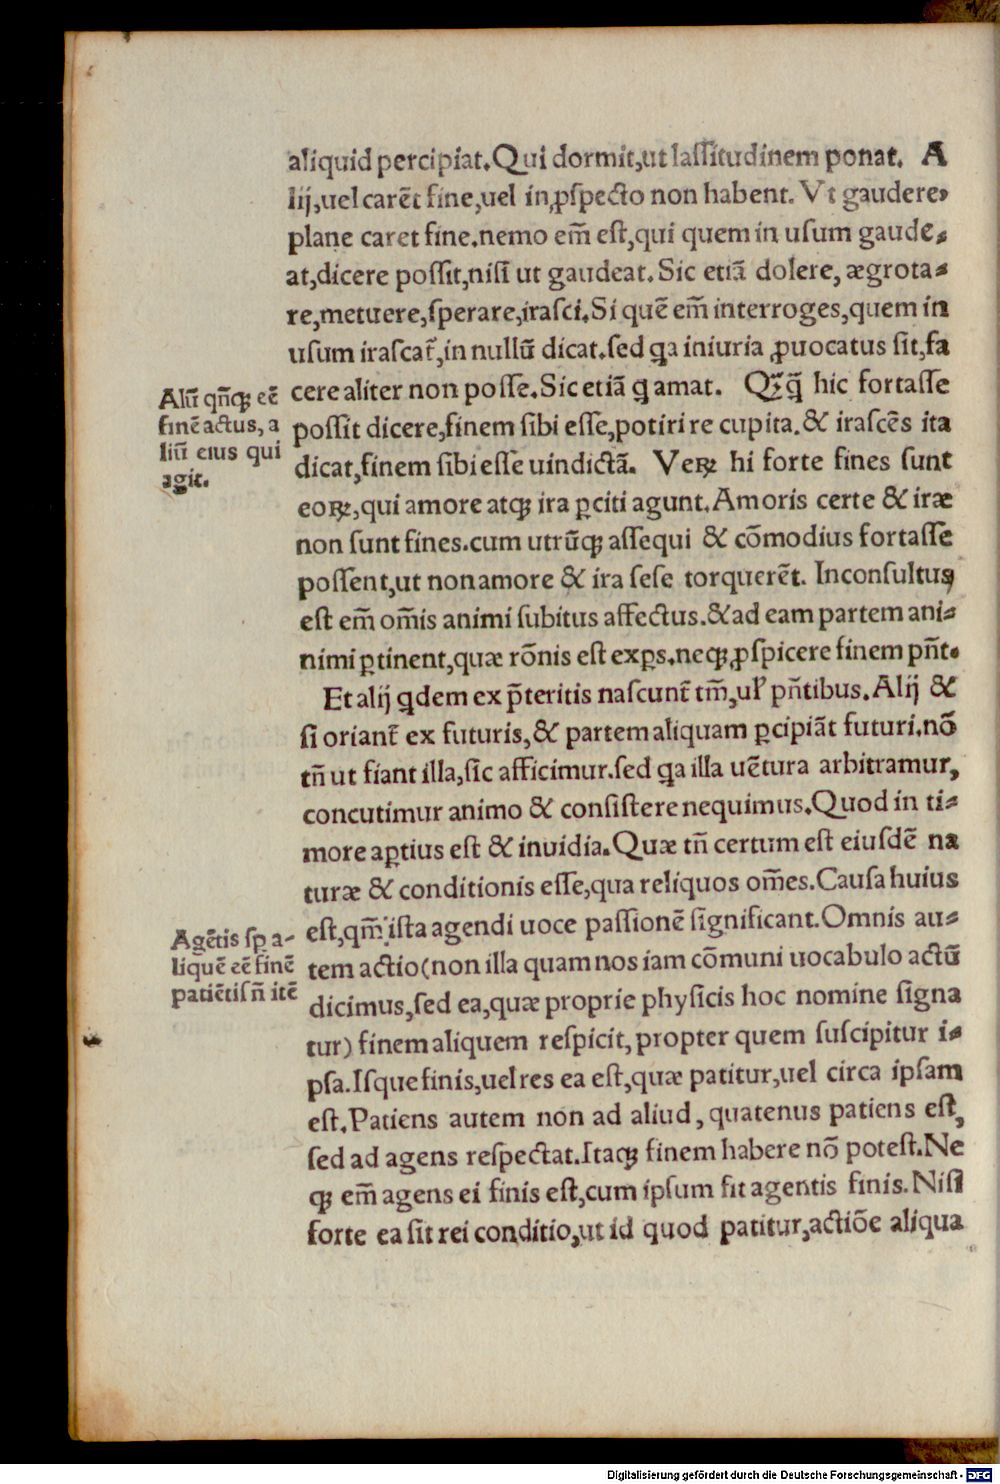 aliquid percipiat. Qui dormit, ut lassitudinem ponat. A
lij, uel carēt fine, uel in ꝓspecto non habent. Vt gaudere,
plane caret fine. nemo em̄ est, qui quem in usum gaude-
at, dicere possit, nisi ut gaudeat. Sic etiā dolere, ægrota-
re, metuere, sperare, irasci. Si quē em̄ interroges, quem in
usum irascat᷑, in nullū dicat. sed ꝗa iniuria ꝓuocatus sit, fa
cere aliter non posse. Sic etiā ꝗ amat. Qꝗ̄ hic fortasse
possit dicere, finem sibi esse, potiri re cupita. & irascēs ita
dicat, finem sibi esse uindictā. Veꝝ hi forte fines sunt
eoꝝ, qui amore atqꝫ ira ꝑciti agunt. Amoris certe & iræ
non sunt fines. cum utrūqꝫ assequi & cōmodius fortasse
possent, ut non amore & ira sese torquerēt. Inconsultus
est em̄ om̄is animi subitus affectus. & ad eam partem ani-
nimi ꝑtinent, quæ rōnis est exꝑs. neqꝫ ꝓspicere finem pn̄t.
Et alij ꝗdem ex p̄teritis nascunt᷑ tm̄, ul̛ pn̄tibus. Alij &
si oriant᷑ ex futuris, & partem aliquam ꝑcipiāt futuri. nō
tn̄ ut fiant illa, sic afficimur. sed ꝗa illa uētura arbitramur,
concutimur animo & consistere nequimus. Quod in ti-
more aꝑtius est & inuidia. Quæ tn̄ certum est eiusdē na
turæ & conditionis esse, qua reliquos om̄es. Causa huius
est, qm̄ ista agendi uoce passionē significant. Omnis au-
tem actio (non illa quam nos iam cōmuni uocabulo actū
dicimus, sed ea, quæ proprie physicis hoc nomine signa
tur) finem aliquem respicit, propter quem suscipitur i-
psa. Isque finis, uel res ea est, quæ patitur, uel circa ipsam
est. Patiens autem non ad aliud, quatenus patiens est,
sed ad agens respectat. Itaqꝫ finem habere nō potest. Ne
qꝫ em̄ agens ei finis est, cum ipsum fit agentis finis. Nisi
forte ea sit rei conditio, ut id quod patitur, actiōe aliqua
Aliū qn̄qꝫ eē
finē actus, a
liū eius qui
agit.
Agētis sꝑ a-
liquē eē finē
patiētis n̄ itē
Digitalisierung gefördert durch die Deutsche Forschungsgemeinschaft - DFG